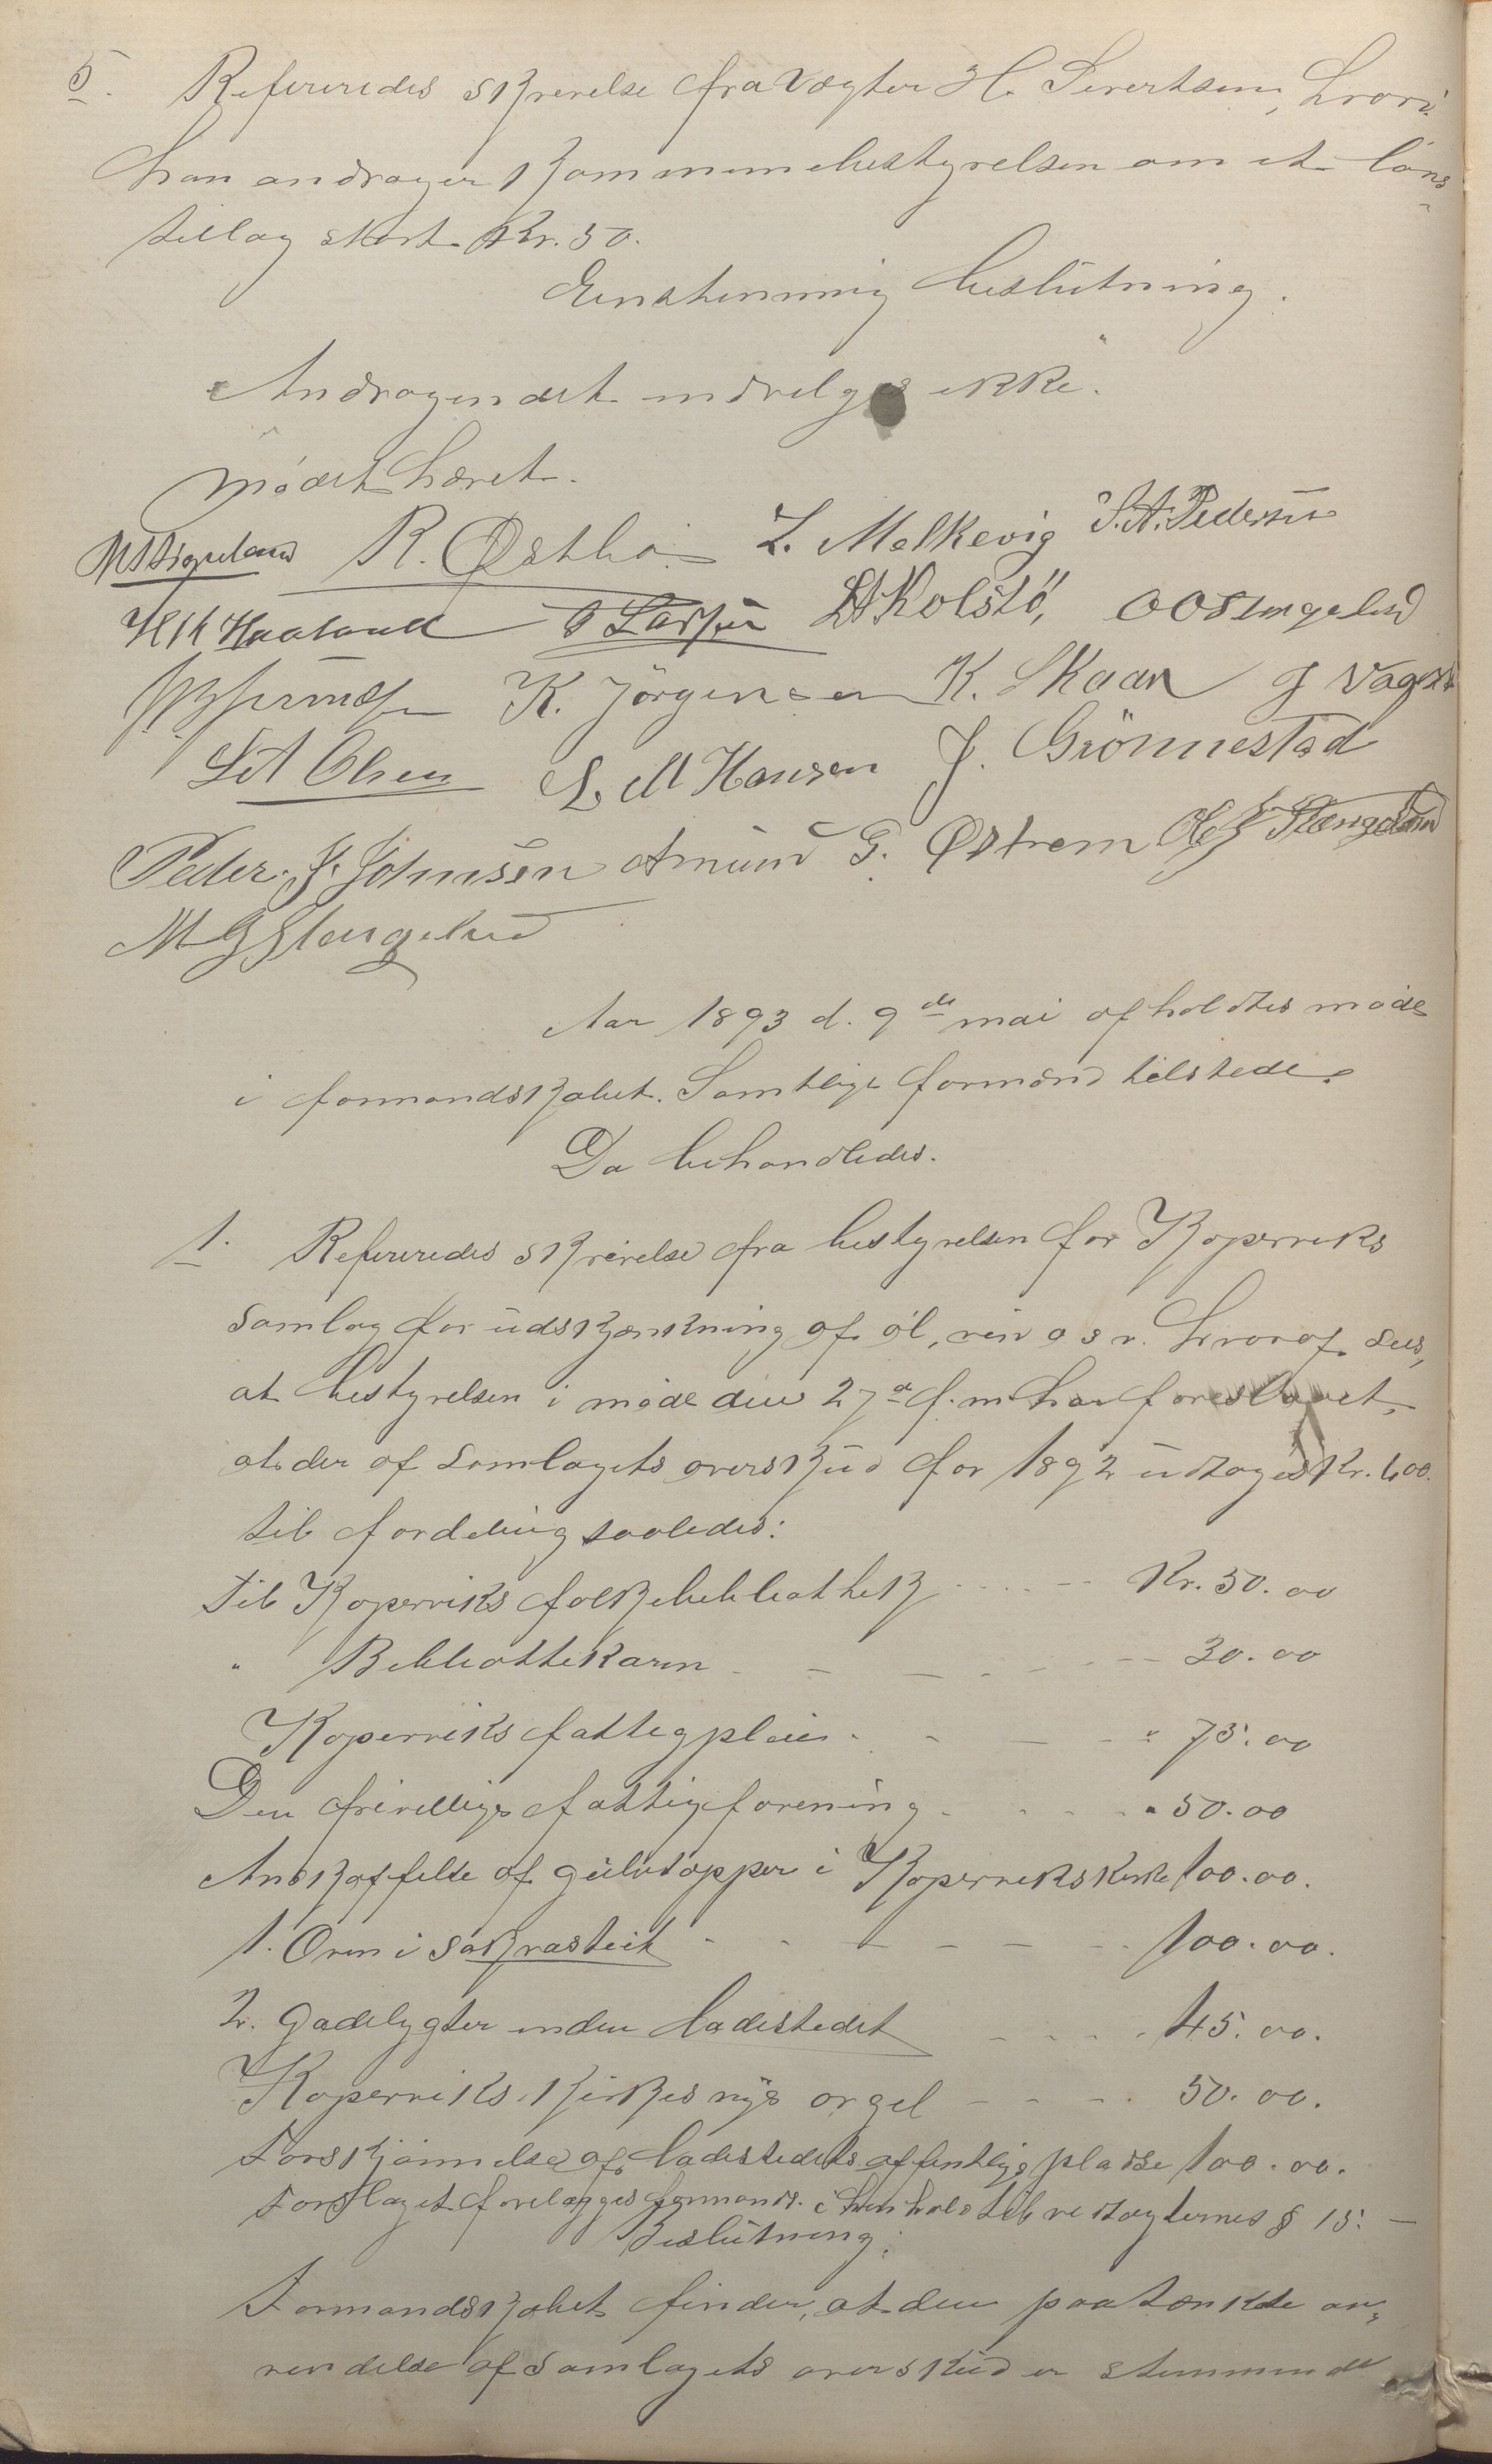 5. Refereredes skrivelse fra vægter H. Sivertsen, hvori
han andrager kommunebestyrelsen om et löns-
tillæg stort Kr. 50.
Enstemmig beslutning.
Andragendet indvilges ikke.
Mödet hævet.
R. Østhu L. Melkevig S. A. Pedersen
H H Haaland O Larsen Kolstö, O O Stengelsd
K. Jörgensen K. Skaar J Våge
L A Olsen L. M Hansen J. Grönnestad
Peder. J. Johnsen Amund G. Østrem
M G Stangeland
Aar 1893 d. 9de mai afholdtes möde
i formandskabet. Samtlige formænd tilstede.
Da behandledes.
1. Refereredes skrivelse fra bestyrelsen for Kopervik's
samlag for udskjænkning af öl, vin o s v. hvoraf sees,
at bestyrelsen i möde den 27de f. m. har foreslaaet,
at der af samlagets overskud for 1892 udtages Kr. 600.
til fordeling saaledes:
Til Koperviks folkebibliothek Kr. 50.00
" Bibliothekaren 30.00
Koperviks fattigpleie " 75.00
Den frivillige fattigforening " 50.00
Anskaffelse af gulvtæpper i Koperviks kirke 100.00.
1. Ovn i sakrastiet 100.00.
2. Gadelygter inden ladestedet 45.00.
Koperviks kirkes nye orgel 50.00.
Forskjönnelse af ladestedets offentlige pladse 100.00.
Forslaget forelægges formands. i henhold til vedtægternes § 15. -
Beslutning:
Formandskabet finder, at den paatænkte an-
vendelse af samlagets overskud er stemmende